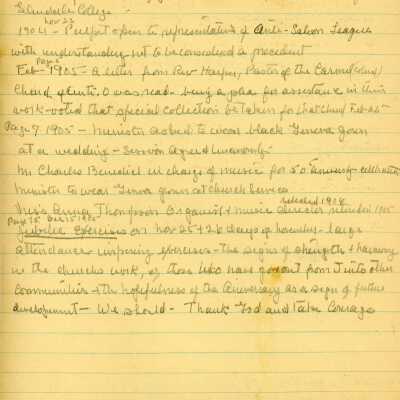 College -
Nov 23
1904 - Pulpit open to representative of Anti-Saloon League
with understanding not to be considered a precedent
Page 6
Feb - 1905 - A letter from Rev Harper, Pastor of the
Church of O was read - being a plea for assistance in their
work - voted that special collection be taken for that church Feb
Page 9 1905 - Minister asked to wear black Geneva gown
at a wedding - Session agreed unanimously -
Mr Charles Benedict in charge of music for 50th anniversary celebration
Minister to wear Geneva gown at church services
1908
Miss Anna Thompson Organist & music director 1905
Page 15 Dec 15 1905
Jubilee Exercises on Nov 25 + 26 days of - large
attendance inspiring exercises - the signs of strength & harmony
in the church's work, of those who have gone out from it into other
communities & the hopefulness of the Anniversary as a sign of future
development - We should - Thank God and Take Courage